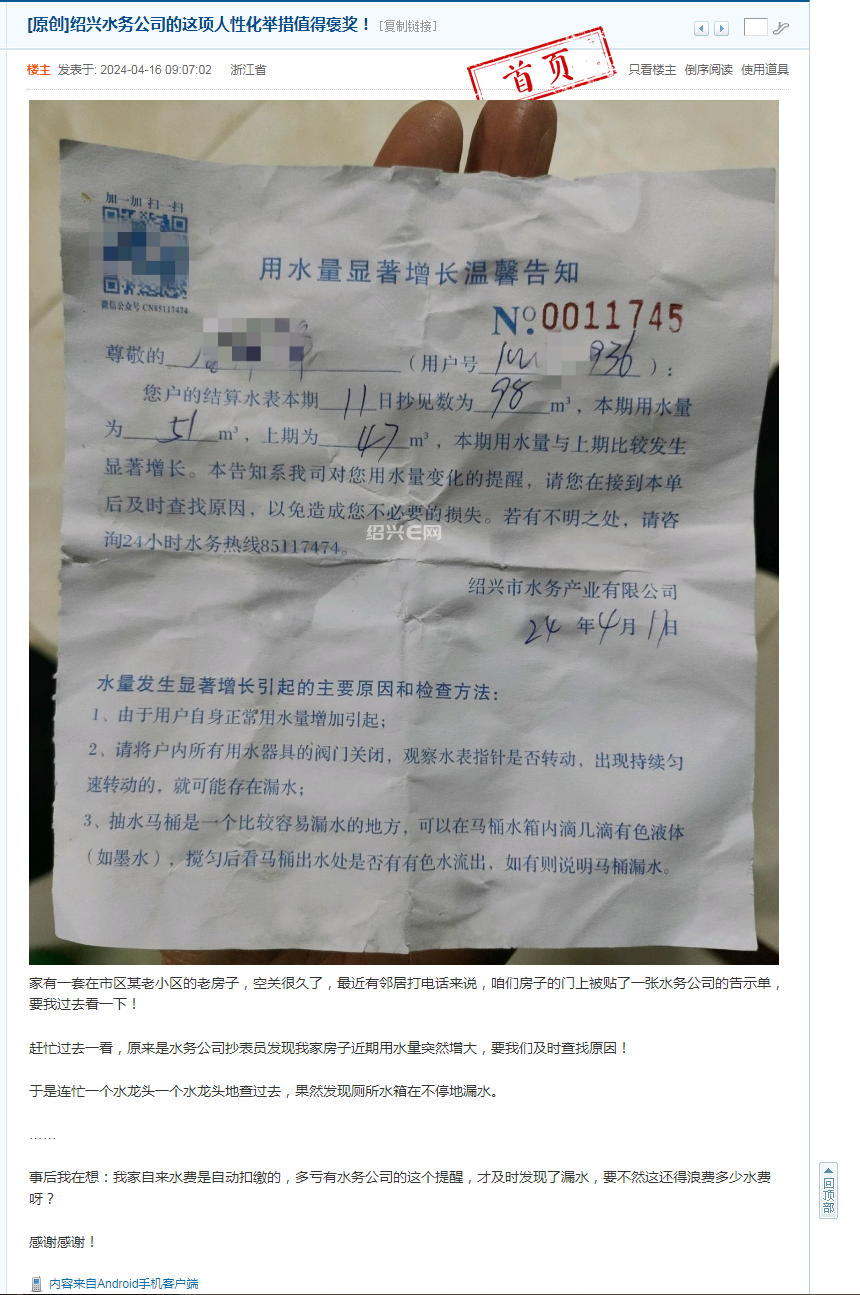 [原创]绍兴水务公司的这项人性化举措值得褒奖！ [复制链接]
楼主 发表于: 2024-04-16 09:07:02 浙江省
首页
只看楼主 倒序阅读 使用道具
加一加 扫一扫
微信公众号 CN85117474
用水量显著增长温馨告知
No.0011745
尊敬的（用户号 936）：
您户的结算水表本期11日抄见数为98m³，本期用水量
为51m³，上期为47m³，本期用水量与上期比较发生
显著增长。本告知系我司对您用水量变化的提醒，请您在接到本单
后及时查找原因，以免造成您不必要的损失。若有不明之处，请咨
询24小时水务热线85117474。
绍兴E网
绍兴市水务产业有限公司
24年4月11日
水量发生显著增长引起的主要原因和检查方法：
1、由于用户自身正常用水量增加引起；
2、请将户内所有用水器具的阀门关闭，观察水表指针是否转动，出现持续匀
速转动的，就可能存在漏水；
3、抽水马桶是一个比较容易漏水的地方，可以在马桶水箱内滴几滴有色液体
（如墨水），搅匀后看马桶出水处是否有有色水流出，如有则说明马桶漏水。
家有一套在市区某老小区的老房子，空关很久了，最近有邻居打电话来说，咱们房子的门上被贴了一张水务公司的告示单，
要我过去看一下！
赶忙过去一看，原来是水务公司抄表员发现我家房子近期用水量突然增大，要我们及时查找原因！
于是连忙一个水龙头一个水龙头地查过去，果然发现厕所水箱在不停地漏水。
……
事后我在想：我家自来水费是自动扣缴的，多亏有水务公司的这个提醒，才及时发现了漏水，要不然这还得浪费多少水费
呀？
感谢感谢！
内容来自Android手机客户端
回顶部